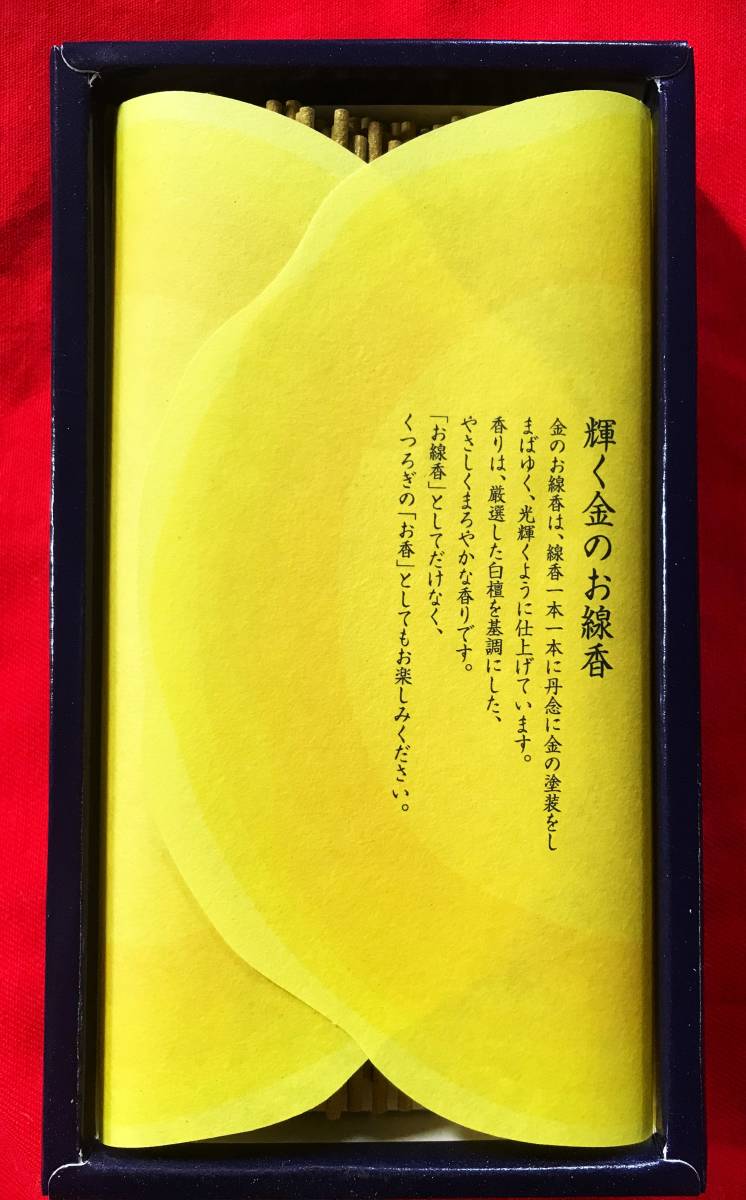 輝く金のお線香
金のお線香は、線香一本一本に丹念に金の塗装をし
まばゆく、光輝くように仕上げています。
香りは、厳選した白檀を基調にした、
やさしくまろやかな香りです。
「お線香」としてだけなく、
くつろぎの「お香」としてもお楽しみください。